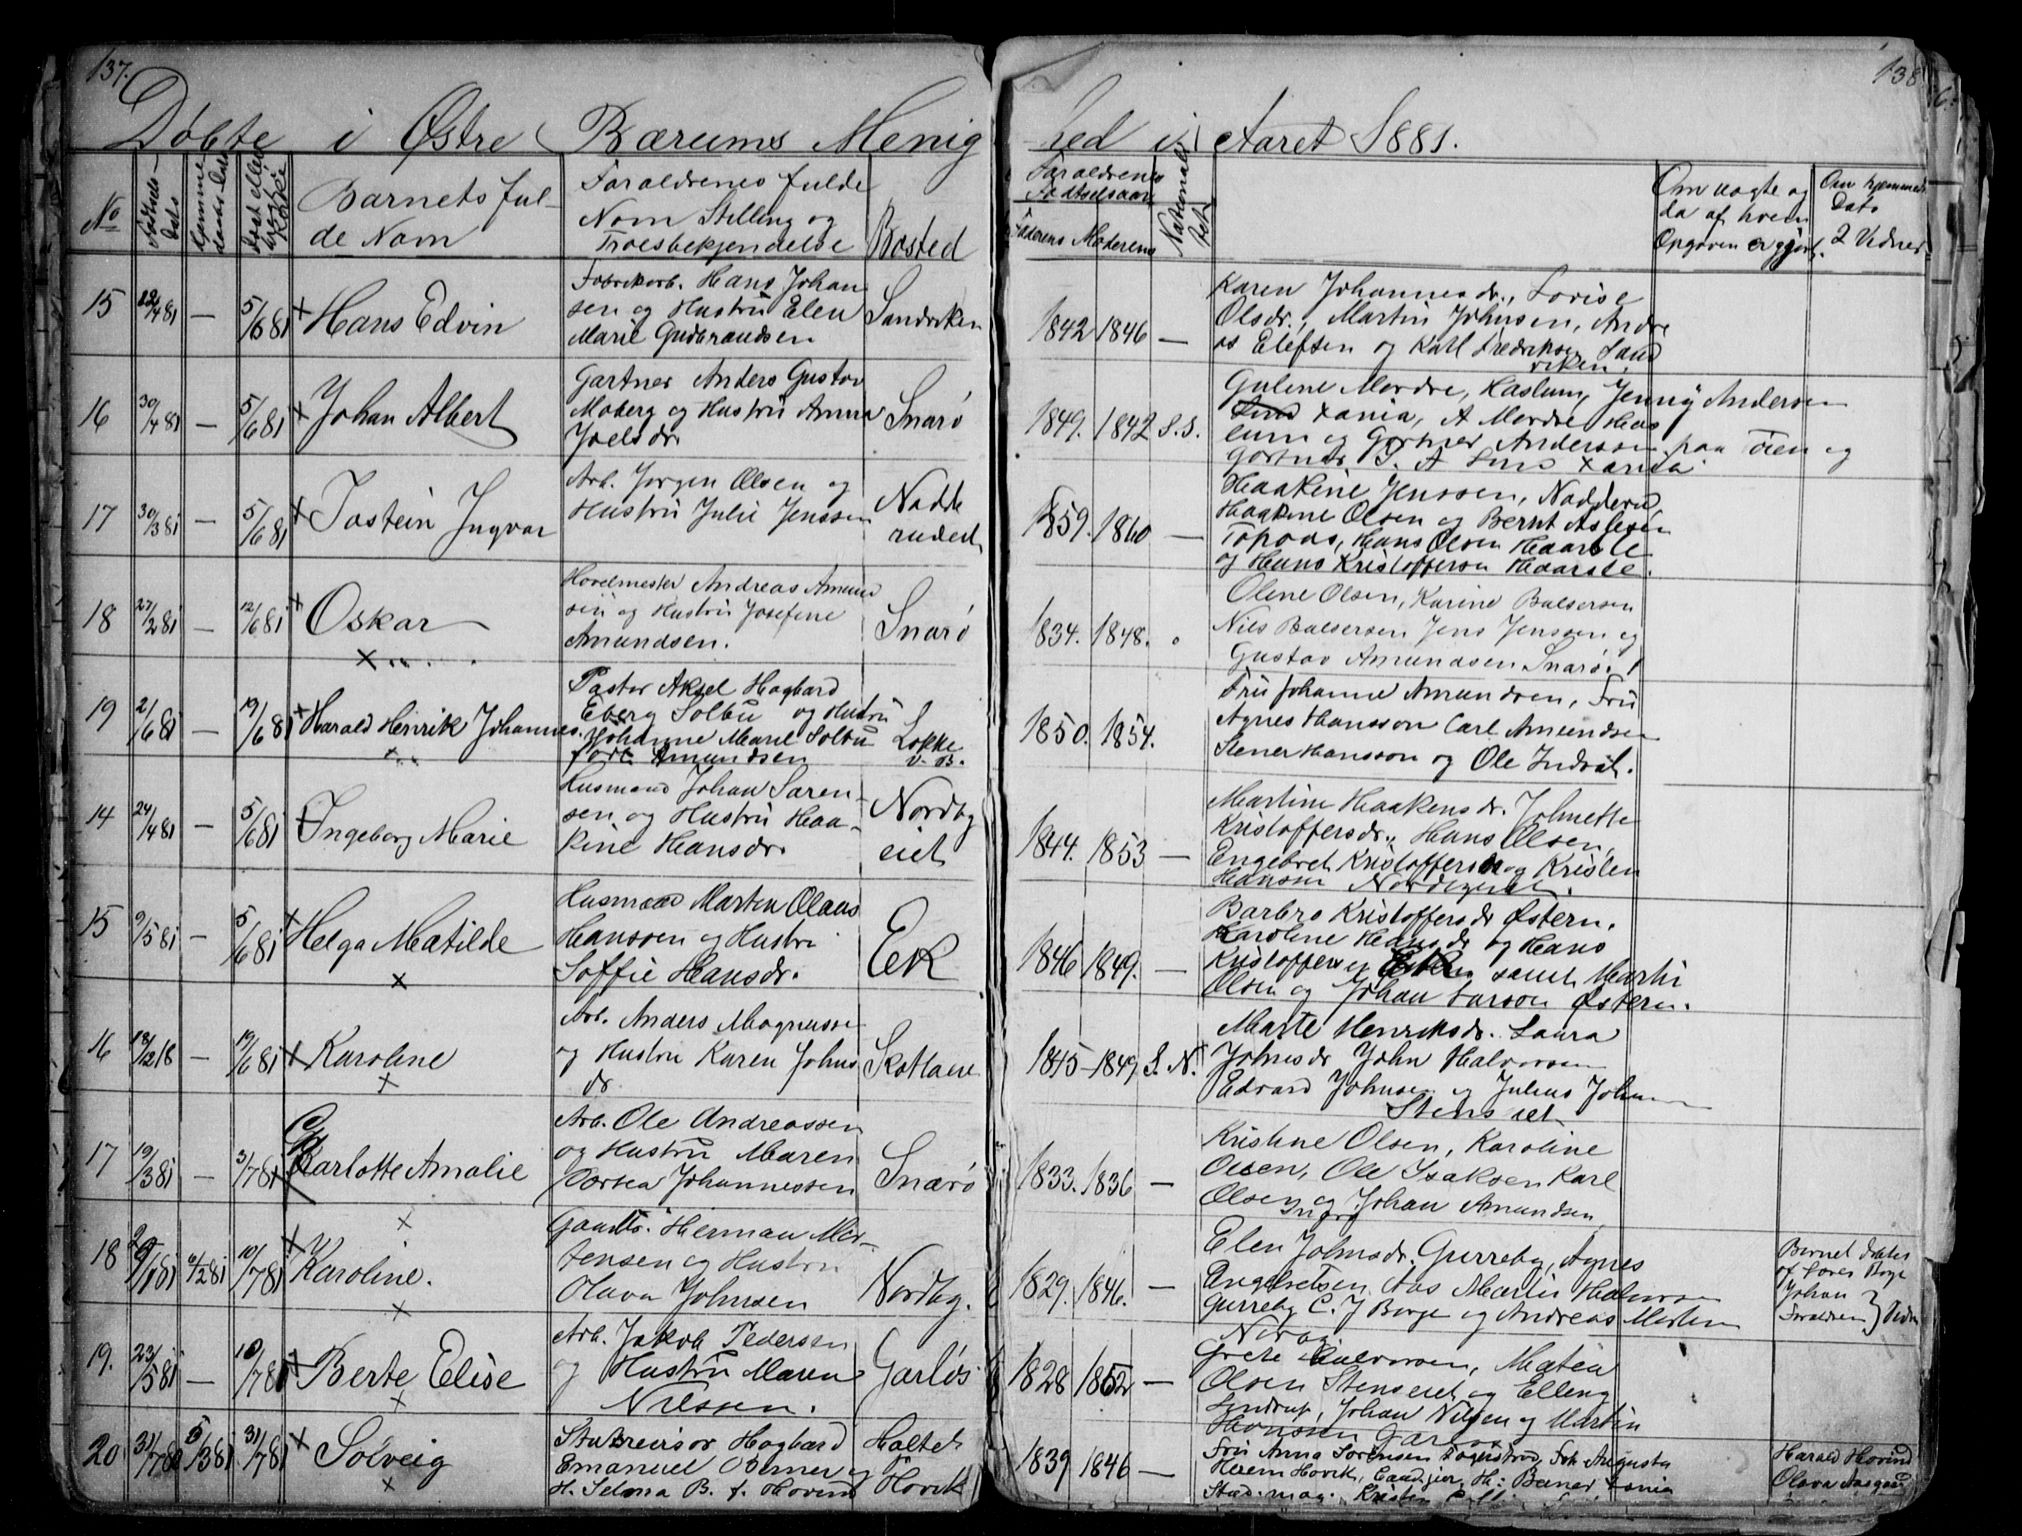 137.
138
Døbte i Østre Bærums Menig
hed i Aaret 1881.
No
Fødsels-
Dato
Barnets ful-
de Navn
Foraldrenes fulde
Navn Stilling og
Troesbekjendelse
Bosted
Foraldrenes
Fødselsaar
Faderens Moderens
Om uægte og
da af hvem
Opgaven er gjort.
Om hjemmed.
Dato
2 Vidner
15 12/4 81 — 5/6 81 + Hans Edvin
Fabrikarb. Hans Johan
sen og Hustru Elen
Marie Gudbrandsen
Sandviken
1842 1846 —
Karen Johannesdr., Lovise
Olsdr., Martin Johnsen, Andre
as Elefsen og Karl Fredriksen Sand
viken.
16 30/4 81 — 5/6 81 + Johan Albert
Gartner Anders Gustav
Moberg og Hustru Anna
Joelsdr
Snarø
1849. 1842 S.S.
Guline Mordre, Haslum, Jenny Andersen
Xania, A Mordre Has
lum og Gartner Anderssen paa Tøien og
Gartner J. A Lind Xania
17 30/3 81 — 5/6 81 + Jostein Ingvar
Arb. Jørgen Olsen og
Hustru Julie Jenssen
Nadde
rudeet
1859. 1860 —
Haakine Jenssen, Nadderud
Haakine Olsen og Bernt Aslesen
Topaas, Hans Olsen Haarste
og Hans Kristofferson Haarste.
18 27/2 81 — 12/6 81 + Oskar
Hovelmester Andreas Amund
sen og Hustru Josefine
Amundsen.
Snarø
1834. 1848.
Olene Olsen, Karine Balsersen
Nils Balsersen Jens Jenssen og
Gustav Amundsen Snarø.
19 2/6 81 — 19/6 81 + Harald Henrik Johannes.
Pastor Aksel Hagbard
Eberg Solbu og Hustru
Johanne Marie Solbu
født Amundsen
Løkke
V. B.
1850. 1854.
Fru Johanne Amundsen, Fru
Agnes Hansson Carl Amundsen
Stener Hansson og Ole Indvik.
14 24/4 81 — 5/6 81 Ingeborg Marie
Husmand Johan Søren-
sen og Hustru Haa-
kine Hansdr.
Nordby
eiet
1844. 1853 —
Martine Haakensdr. Johnette
Kristoffersdr., Hans Olsen,
Engebret Kristoffersen og Kristen
Hansen Nordbyeiet.
15 9/5 81 — 5/6 81 + Helga Matilde
Husmand Marten Olaus
Hanssen og Hustru
Soffie Hansdr.
Eek
1846 1849. —
Barbro Kristoffersdr Østern.
Karoline Hansdr og Hans
Kristoffersen samt Martin
Olsen og Johan Larson Østern.
16 — 19/6 81 + Karoline
Arb. Anders Magnusse
og Hustru Karen Johns
dr
Skotlane
1845 — 1849 S. N.
Marte Henriksdr. Laura
Johnsdr John Halvorsen
Edvard Johnsen og Julius Johnsen
Stenseiet
17 19/3 81 — 3/7 81 Karlotte Amalie
Arb. Ole Andreassen
og Hustru Maren
Dortea Johannessen
Snarø
1833. 1836 —
Kristine Olsen, Karoline
Olsen, Ole Isaksen Karl
Olsen og Johan Amundsen
Snarø
18 6/2 81 10/7 81 + Karoline.
Herman Mor-
tensen og Hustru
Olava Johnsen
Nordby.
1829. 1846. —
Elen Johnsdr. Gurreby, Agnes
Engebretsen Aas Martin Halvorsen
Gurreby C. J Borge og Andreas Morten
Barnet døbtes
af Lærer Borge
Johan
Foraldrene } Vidner
19. 23/5 81 — 10/7 81 + Berte Elise
Arb. Jakob Pedersen
og Hustru Maren
Nilssen.
Garløs
1828 1852 —
Grete Halvorsen, Matea
Olsen Stenseiet og Elling
Syndrup, Johan Nilsen og Martin
Hanssen Garløs
20 5/3 81 31/7 81 + Solveig
Statsrevisor Hagbard
Emanuel Berner og
H. Selma B. f. Hovind
Holtet
Høvik
1839 1846 —
Fru Anna Sørensen Fagerstrand, Frk Augusta
Herem Høvik, H: Berner Xania
Stud. mag. Kristen
Harald Hovind
Olava Aasgaard